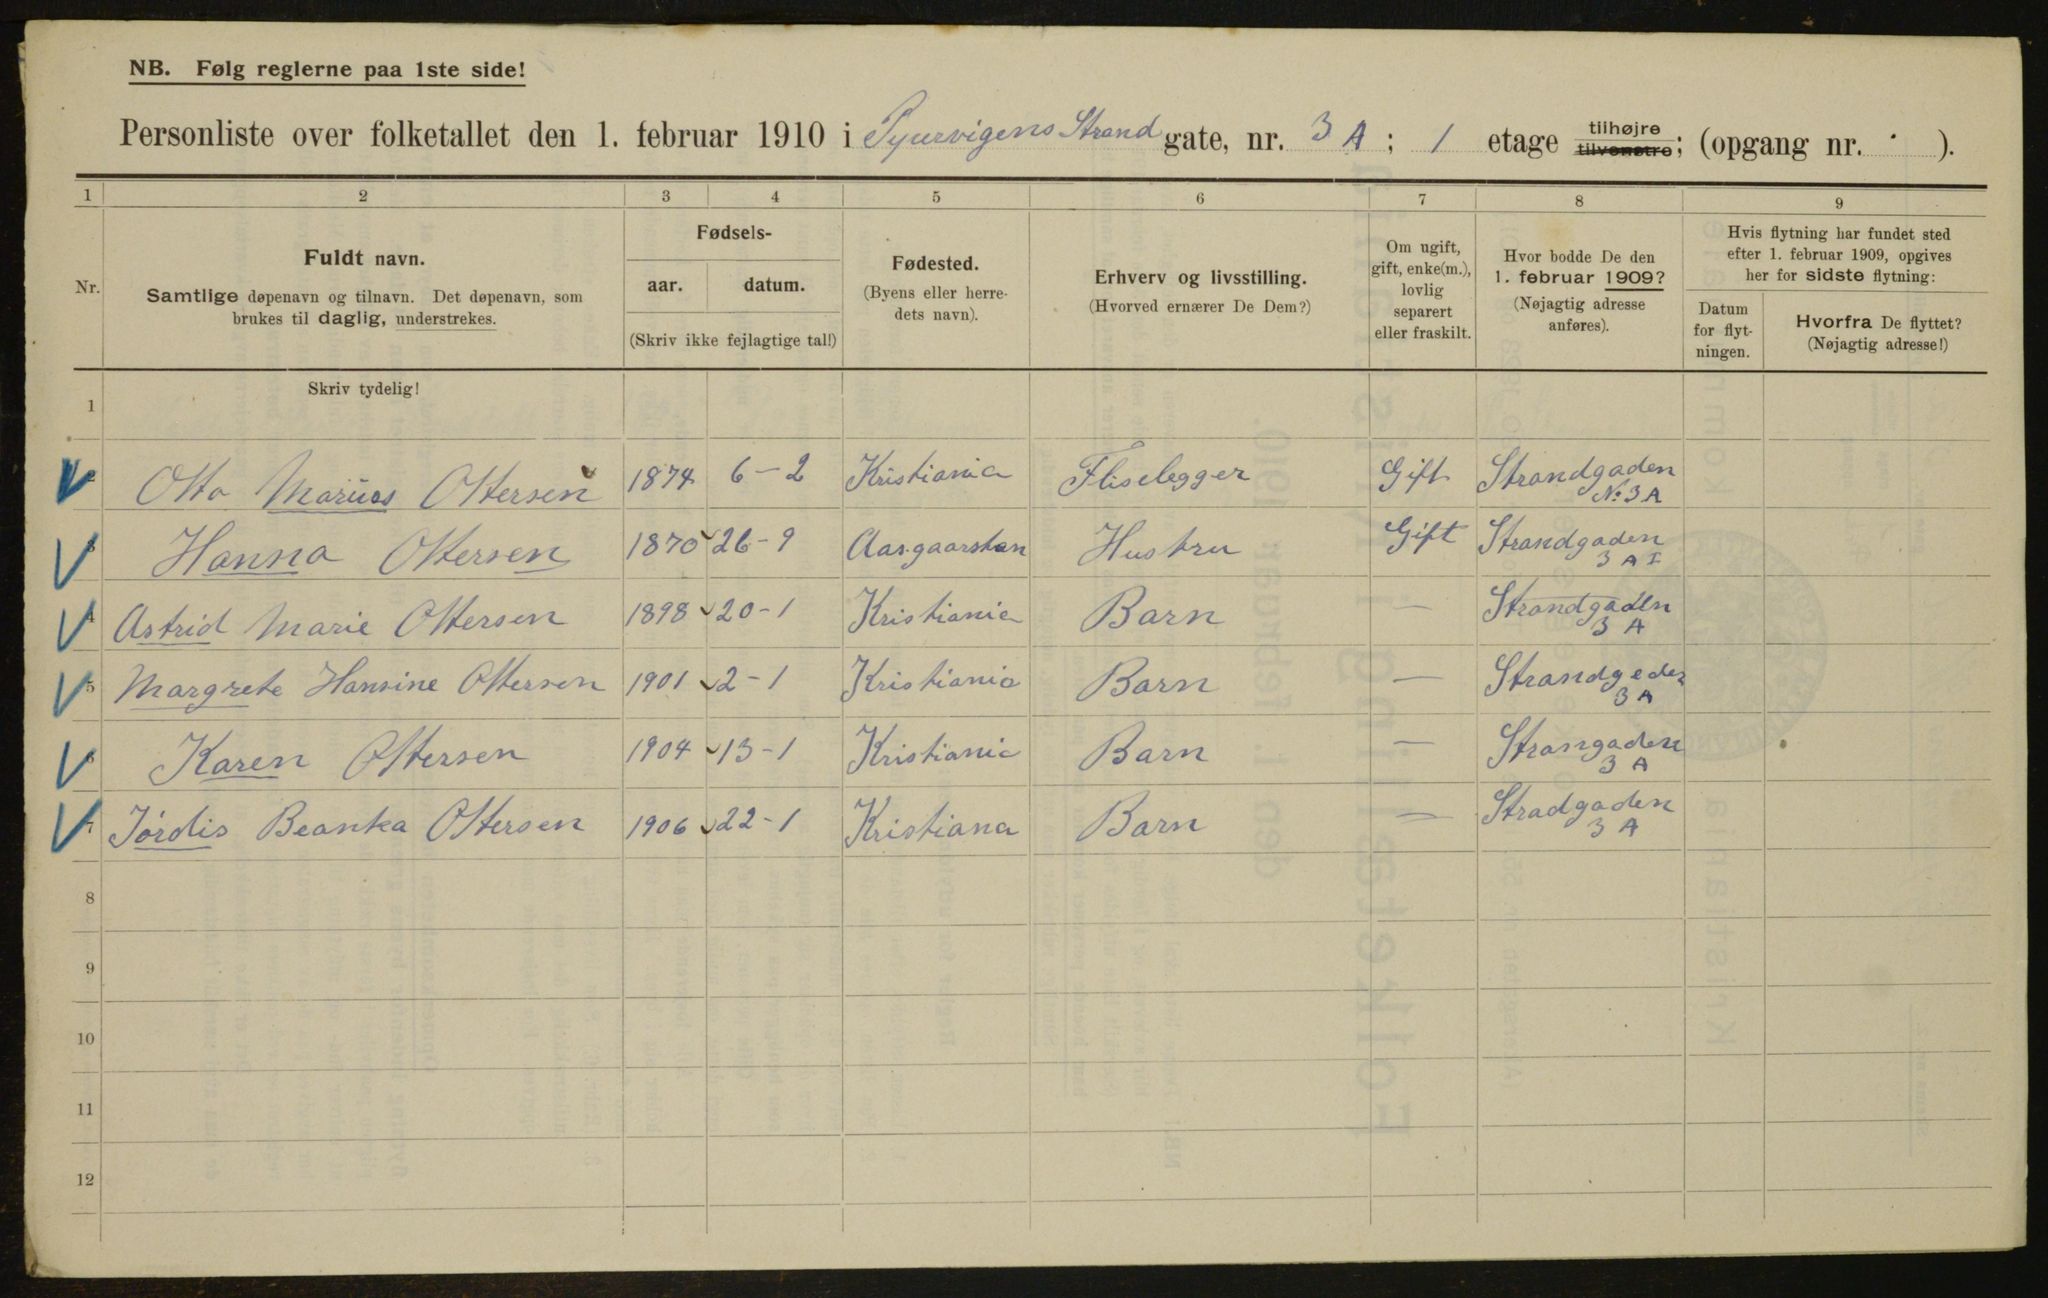 NB. Følg reglerne paa 1ste side!
Personliste over folketallet den 1. februar 1910 i Pyurvigens Strand gate, nr. 3 A ; 1 etage tilhøjre tilvenstre; (opgang nr. ).
1 2 3 4 5 6 7 8 9
Nr.
Fuldt navn.
Samtlige døpenavn og tilnavn. Det døpenavn, som
brukes til daglig, understrekes.
Fødsels-
aar. datum.
(Skriv ikke fejlagtige tal!)
Fødested.
(Byens eller herre-
dets navn).
Erhverv og livsstilling.
(Hvorved ernærer De Dem?)
Om ugift,
gift, enke(m.),
lovlig
separert
eller fraskilt.
Hvor bodde De den
1. februar 1909?
(Nøjagtig adresse
anføres).
Hvis flytning har fundet sted
efter 1. februar 1909, opgives
her for sidste flytning:
Datum
for flyt-
ningen.
Hvorfra De flyttet?
(Nøjagtig adresse!)
Skriv tydelig!
1
2 Otto Marius Ottersen 1874 6-2 Kristiania Fliselegger Gift Strandgaden
No 3 A
3 Hanna Ottersen 1870 26-9 Aasgaarstan Hustru Gift Strandgaden
3 A I
4 Astrid Marie Ottersen 1898 20-1 Kristiania Barn — Strandgaden
3 A
5 Margrete Hansine Ottersen 1901 2-1 Kristiania Barn — Strandgeden
3 A
6 Karen Ottersen 1904 13-1 Kristiania Barn — Strangaden
3 A
7 Jórdis Beanka Ottersen 1906 22-1 Kristiana Barn — Stradgaden
3 A
8
9
10
11
12